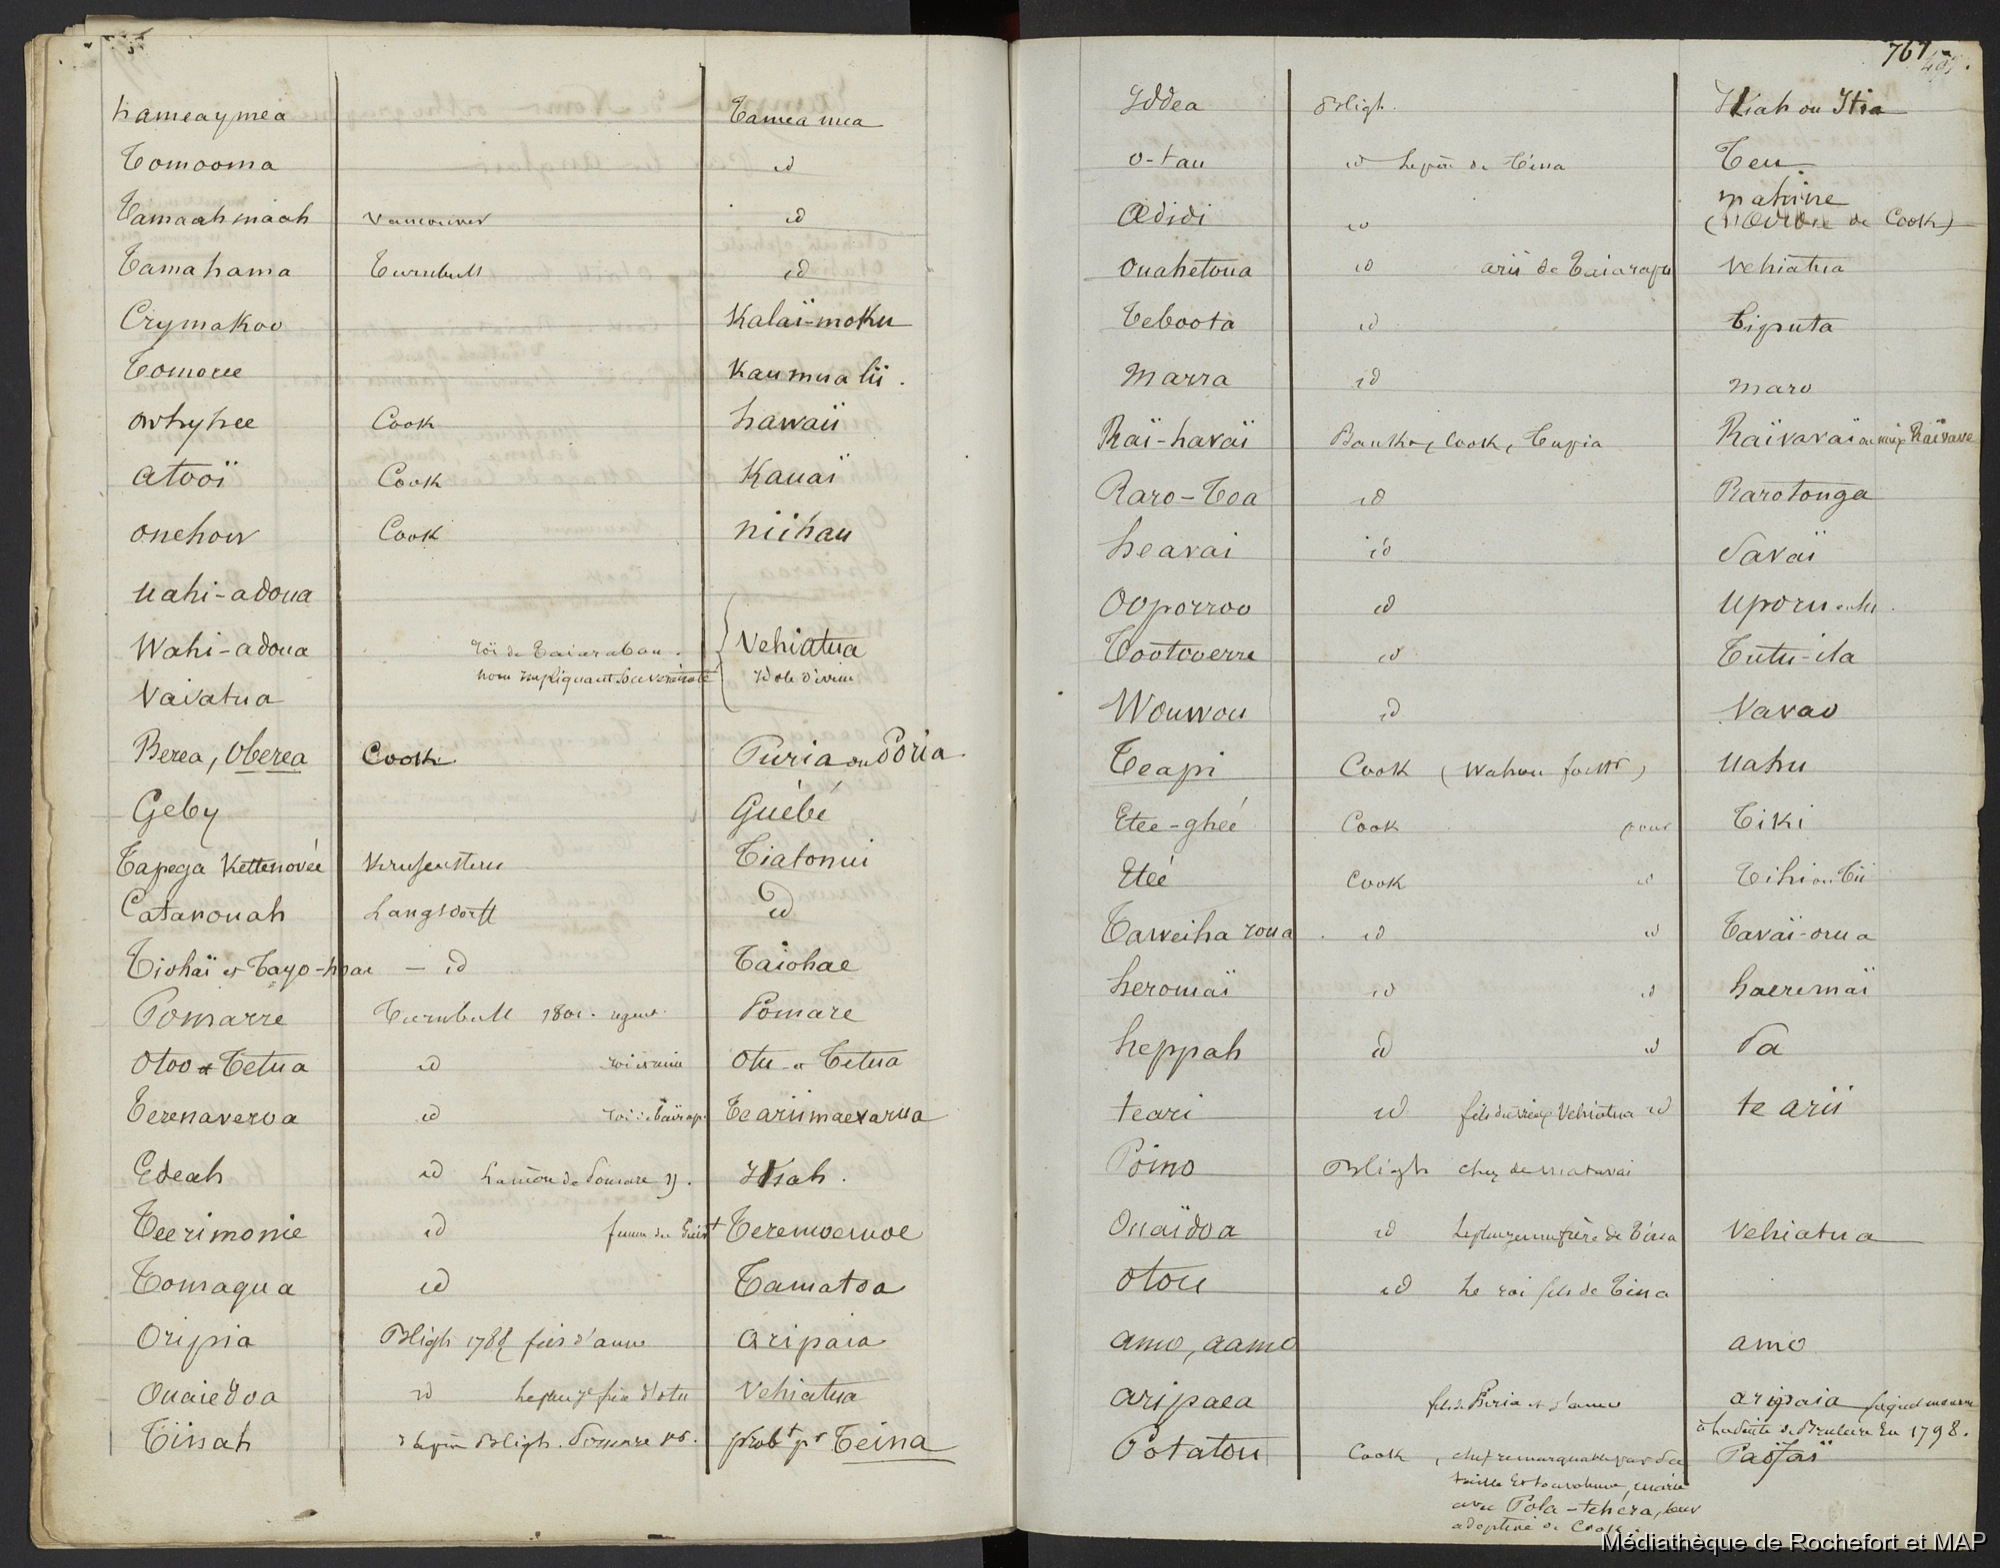 hameaymea Tamea mea
Tomooma id
Tamaahmaah Vancouver id
Tamahama Turnbull id
Crymakoo Kalaï-moku
Tomoree Kaumualii.
Owhyhee Cook hawaii
atooï Cook Kauaï
onehow Cook niihau
Uahi-adoua
Wahi-adoua roi de Taiarabou. Vehiatua
nom impliquant
Vaivatua
Berea, Oberea Cook Puria ou Poria
Geby Guébé
Tapega Kettenovée Krusenstern Tiatonui
Catanouah Langsdorff id
Tiohaï et Tayo-hoae — id Taiohae
Pomarre Turnbull 1801. Pomare
Otoo et Tetua id Otu et Tetua
Terenaveroa id Teariimaevarua
Edeah id
Teerimonie id Teremoemoe
Tomaqua id Tamatoa
Oripia Bligh aripaia
Ouaiedoa id Vehiatua
Tinah Bligh. Pomare probt pr Teina
767
Iddea Bligh. ou Itia
O-tau id le père de Tina Teu
mahine
Œdidi id (l'Œdidée de Cook)
Ouahetoua id arii de Taiarapu Vehiatua
Teboota id Tiputa
Marra id maro
Raï-havaï Banks, Cook, Tupia Raïvavaï ou mieux Raïvave
Raro-Toa id Rarotonga
heavai id Savaï
Ooporroo id Uporu
Tootooerre id Tutu-ila
Wouwou id Vavao
Teapi Cook (Wahou ) Uahu
Etee-ghéé Cook pour Tiki
Eteé Cook id Tihi ou Tii
Taweiha roua id id Tavaï-orua
heromaï id id haeremaï
heppah id id Pa
teari id fils du vieux Vehiatua id te arii
Poino Bligh chef de matavai
Ouaïdoa id le plus jeune frère de Tina Vehiatua
Otou id Le roi fils de Tina
amo, aamo amo
aripaea fils de Puria et d'amo aripaia
en 1798.
Potatou Cook, chef remarquable par sa
taille et sa
avec Pola-tehera, sœur
adoptive de Cook.
Médiathèque de Rochefort et MAP